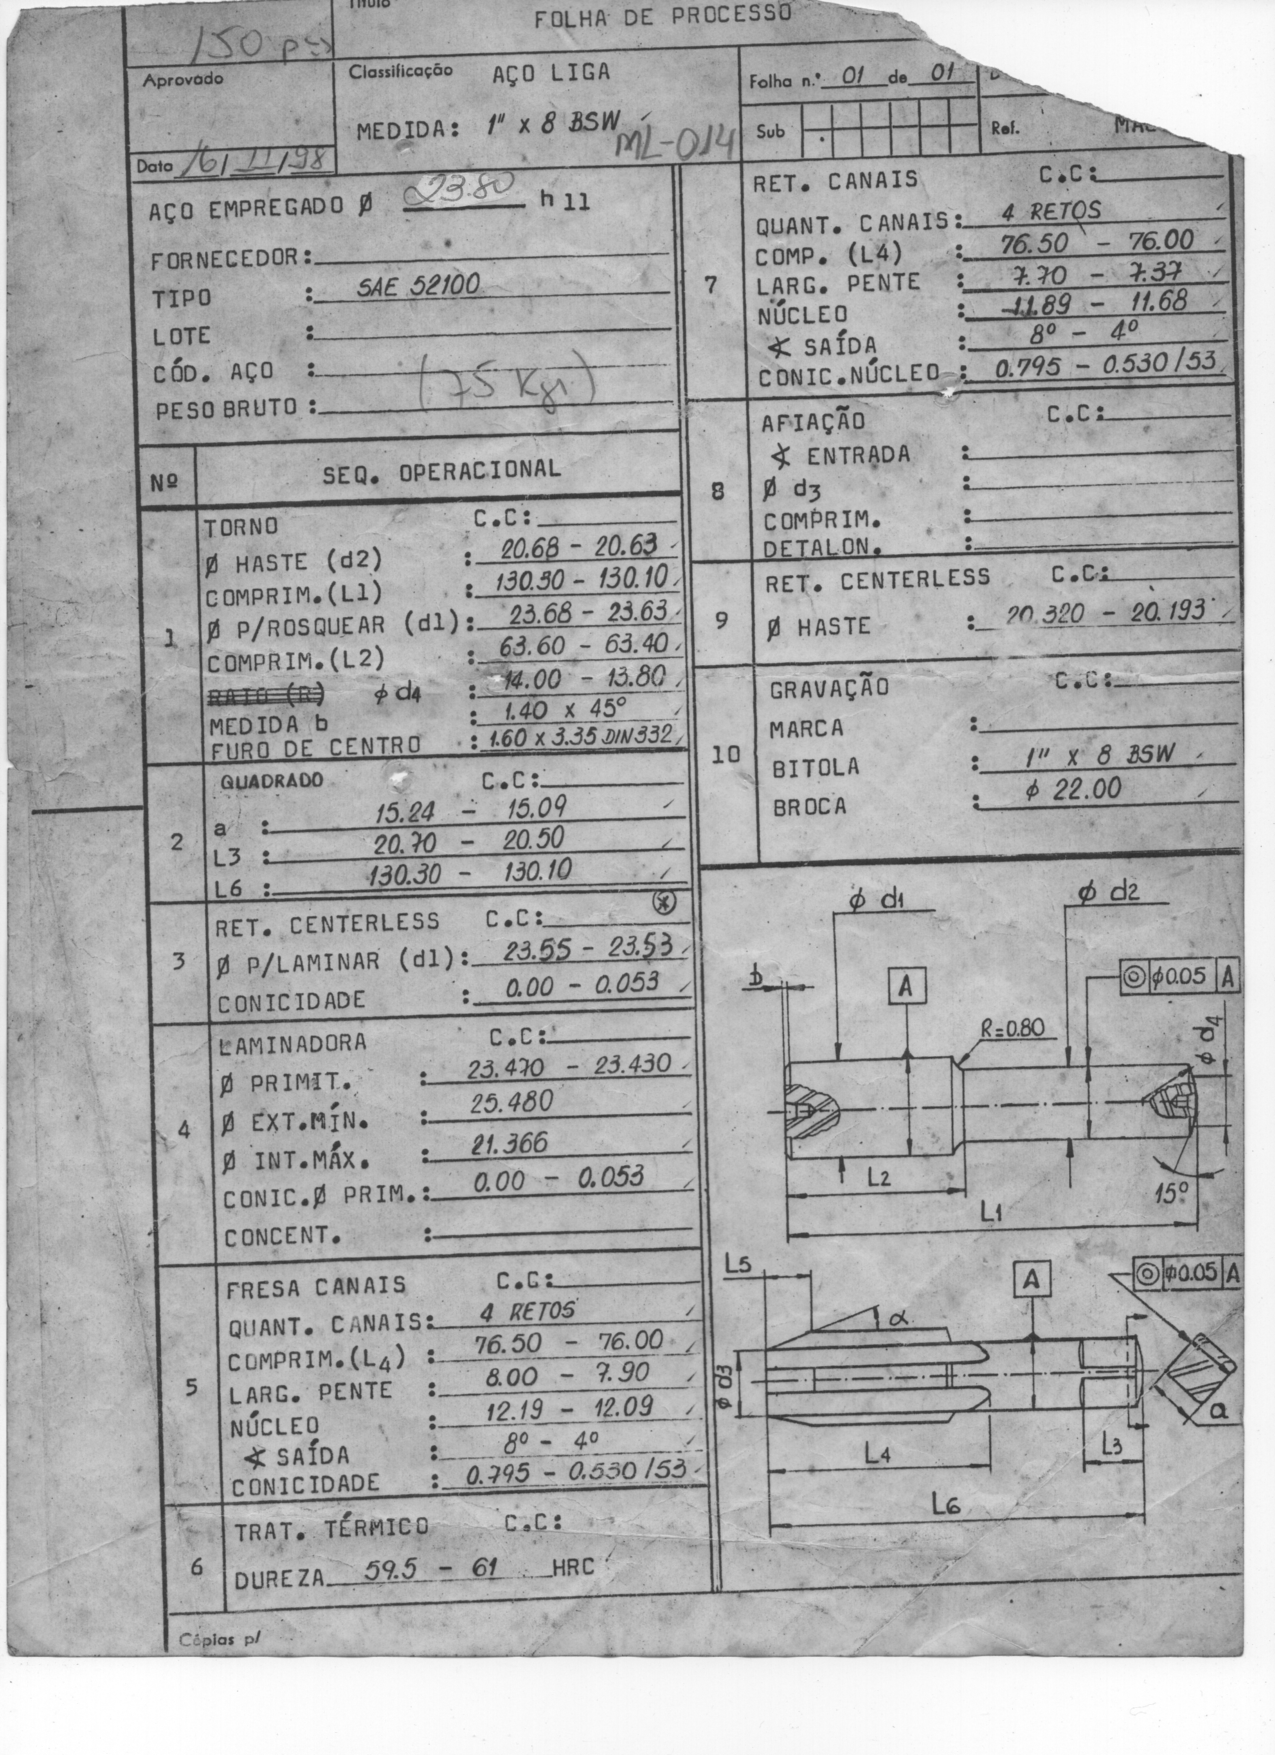 Título
FOLHA DE PROCESSO
150 pçs
Aprovado
Classificação AÇO LIGA
MEDIDA: 1" x 8 BSW
ML-014
Data 16/11/98
Folha n.° 01 de 01
Sub
Ref.
AÇO EMPREGADO Ø 23.80 h 11
FORNECEDOR:
TIPO : SAE 52100
LOTE :
CÓD. AÇO :
PESO BRUTO : (75 Kgs)
Nº SEQ. OPERACIONAL
1
TORNO C.C:
Ø HASTE (d2) : 20.68 - 20.63
COMPRIM.(L1) : 130.30 - 130.10
Ø P/ROSQUEAR (d1): 23.68 - 23.63
COMPRIM.(L2) : 63.60 - 63.40
RAIO (R) ϕ d4 : 14.00 - 13.80
MEDIDA b : 1.40 x 45°
FURO DE CENTRO : 1.60 x 3.35 DIN 332
2
QUADRADO C.C:
a : 15.24 - 15.09
L3 : 20.70 - 20.50
L6 : 130.30 - 130.10
3
RET. CENTERLESS C.C:
Ø P/LAMINAR (d1): 23.55 - 23.53
CONICIDADE : 0.00 - 0.053
4
LAMINADORA C.C:
Ø PRIMIT. : 23.470 - 23.430
Ø EXT.MÍN. : 25.480
Ø INT.MÁX. : 21.366
CONIC.Ø PRIM.: 0.00 - 0.053
CONCENT. :
5
FRESA CANAIS C.C:
QUANT. CANAIS: 4 RETOS
COMPRIM.(L4) : 76.50 - 76.00
LARG. PENTE : 8.00 - 7.90
NÚCLEO : 12.19 - 12.09
∢ SAÍDA : 8° - 4°
CONICIDADE : 0.795 - 0.530/53
6
TRAT. TÉRMICO C.C:
DUREZA 59.5 - 61 HRC
Cópias p/
7
RET. CANAIS C.C:
QUANT. CANAIS: 4 RETOS
COMP. (L4) : 76.50 - 76.00
LARG. PENTE : 7.70 - 7.37
NÚCLEO : 11.89 - 11.68
∢ SAÍDA : 8° - 4°
CONIC.NÚCLEO : 0.795 - 0.530/53
8
AFIAÇÃO C.C:
∢ ENTRADA :
Ø d3 :
COMPRIM. :
DETALON. :
9
RET. CENTERLESS C.C:
Ø HASTE : 20.320 - 20.193
10
GRAVAÇÃO C.C:
MARCA :
BITOLA : 1" x 8 BSW
BROCA : ϕ 22.00
ϕ d1 ϕ d2
b A ◎ ϕ0.05 A
R=0.80 ϕ d4
L2
15°
L1
L5 A ◎ ϕ0.05 A
α
ϕ d3
a
L4 L3
L6